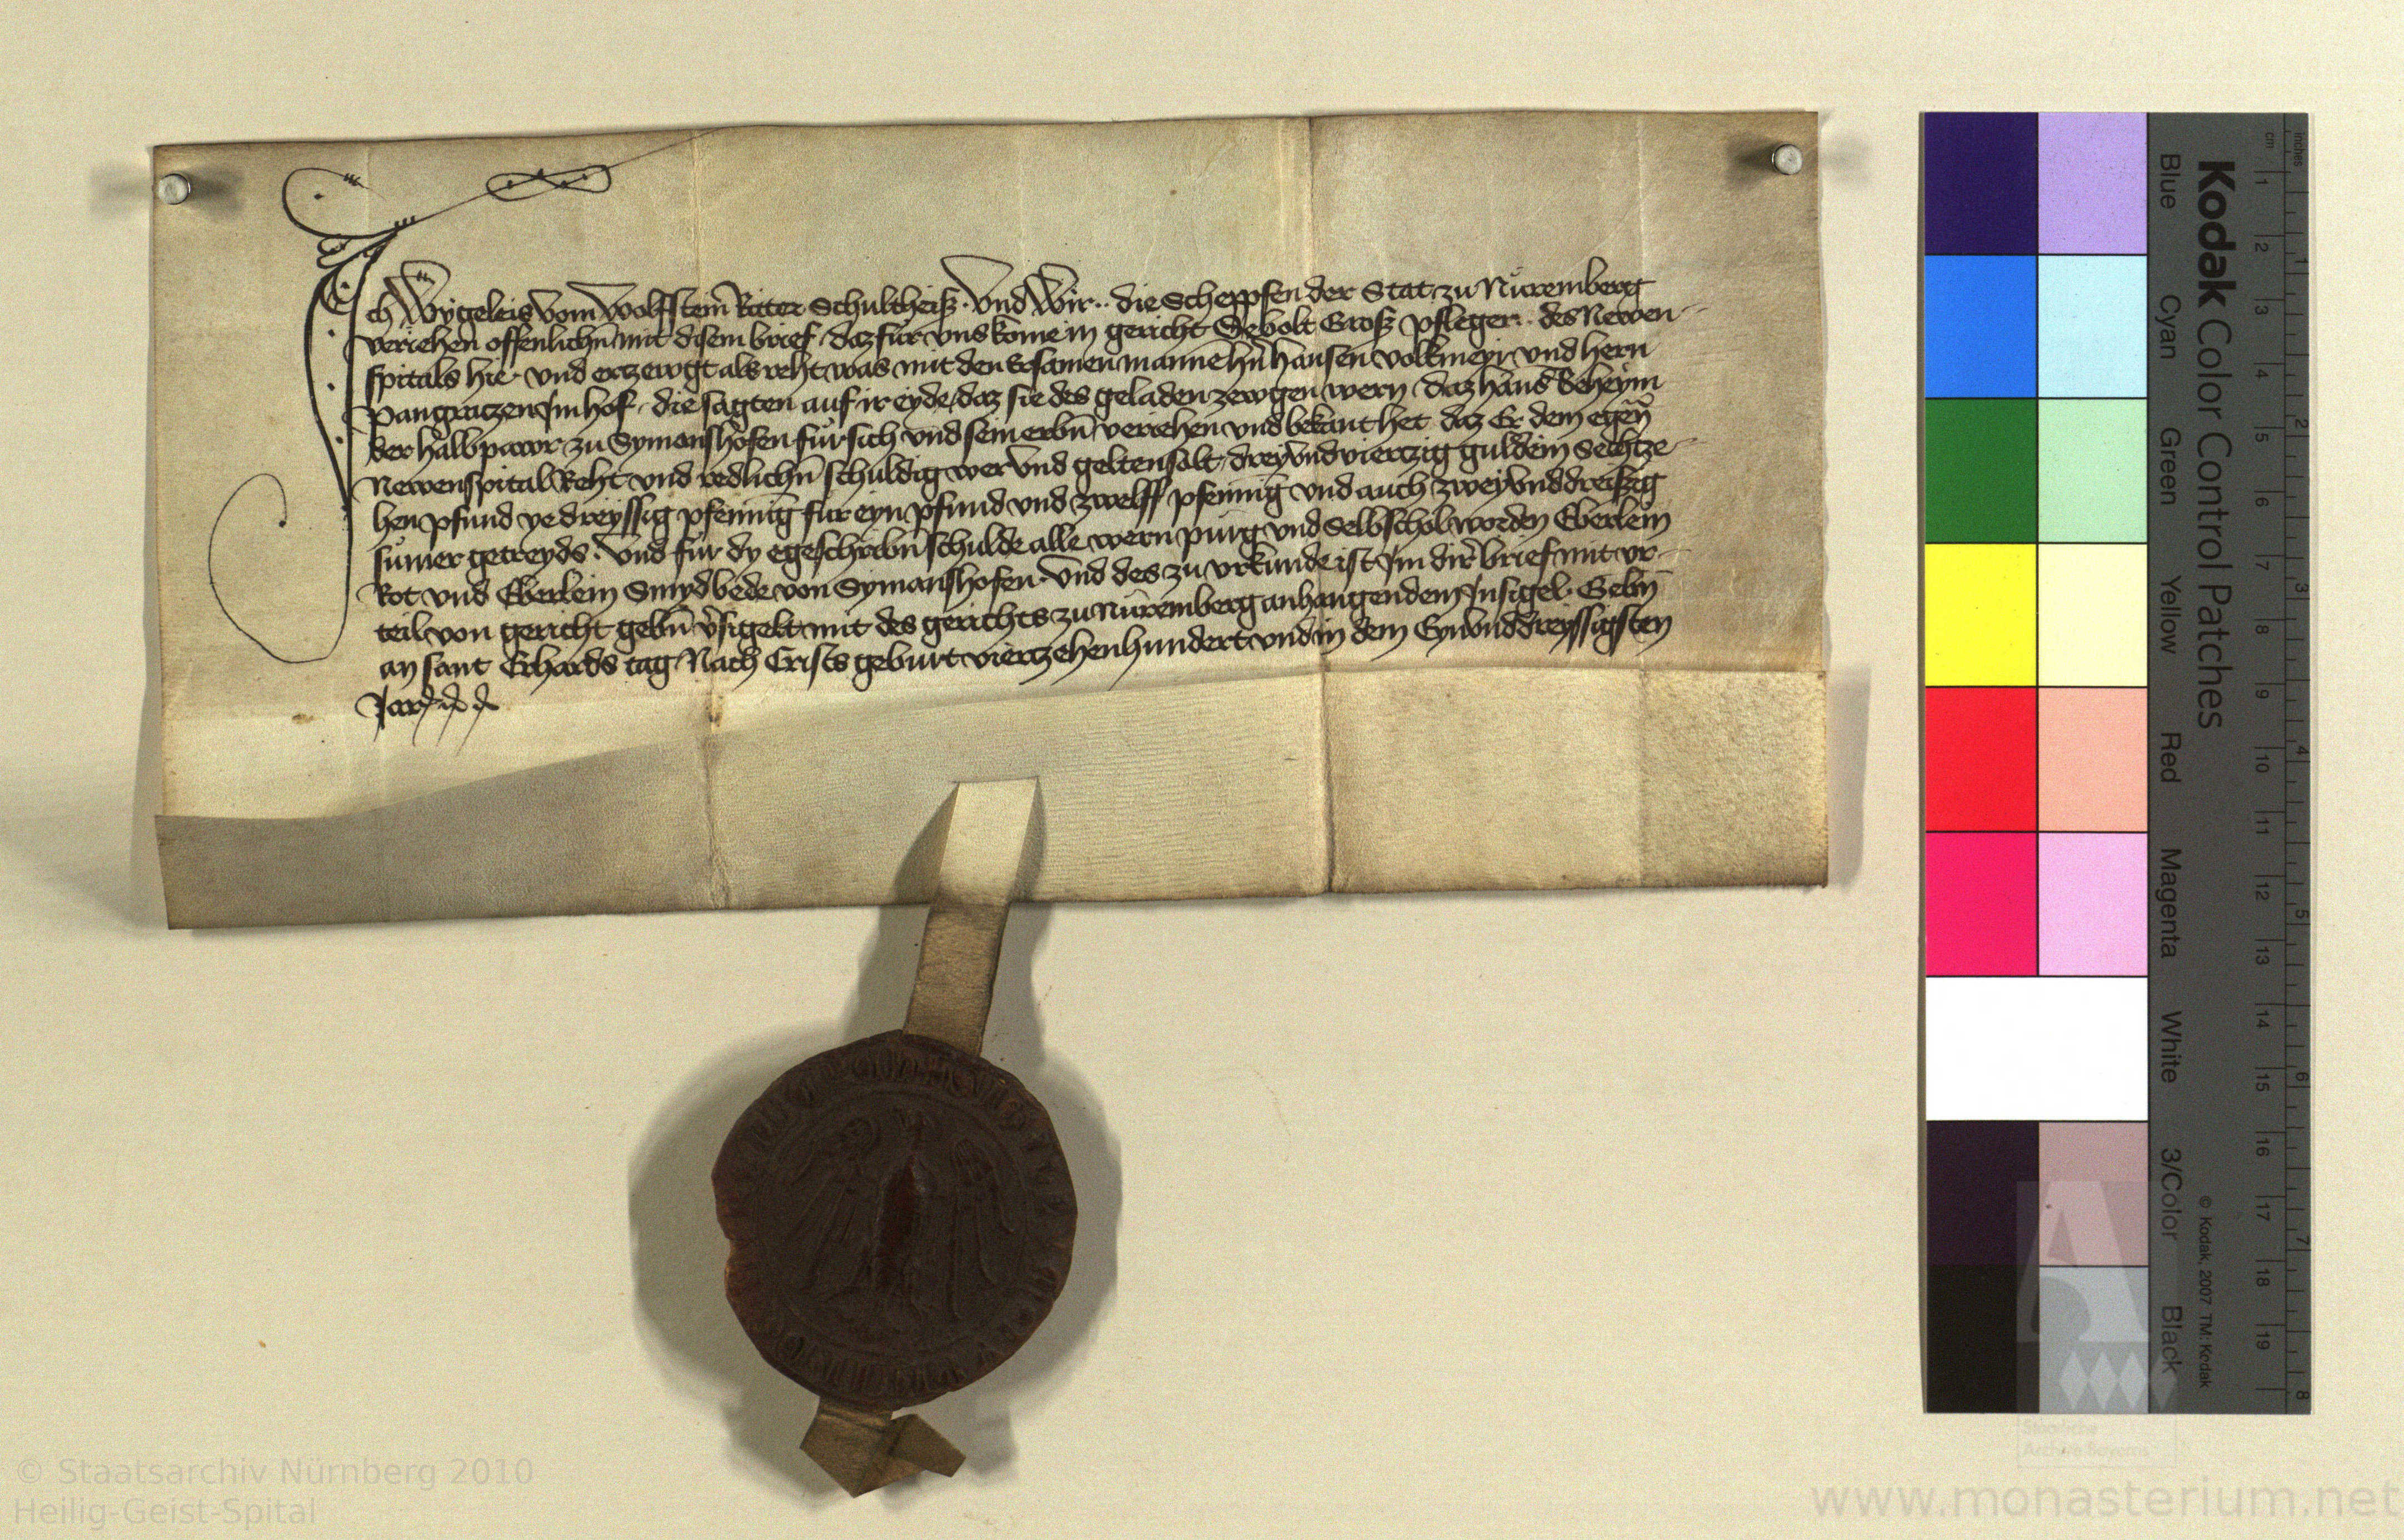 Ich Wygeleis vom Wolffstein Ritter Schultheiß · Und Wir ·· die Scheppfen der Stat zu Nuͤremberg
veriehen offenlichn̄ mit disem brief daz fur vns kome in gericht Sebolt Groß pfleger ·· des Newen
spitals hie · vnd ertzewgt als reht was mit den Ersamen manne hn̄ hansen volkmeyr vnd hern
pangratzen Imhof · die sagten auf ir eyde daz sie des geladen zewgen wern daz hans Beheym
der halbpawr zu Symonshofen fuͤr sich vnd sein erbn̄ veriehen vnd bekant het daz Er dem egen̄
Newenspital Reht vnd redlichn̄ schuldig wer vnd gelten solt drey vnd viertzig guldein Sechtze
hen pfund ye dreyssig pfennig fur eyn pfund vnd zwelff pfennig vnd auch zwey vnd dreißig
sumer getreyds · Vnd fur dy egeschribn̄ schulde alle wern puͤrg vnd Selbschol worden Eberlein
Rot vnd Eberlein Smyd bede von Symanshofen · Vnd des zu vrkunde ist Im dir̄ brief mit vr
teil von gericht gebn̄ v̄sigelt mit des gerichts zu Nuͤremberg anhangendem Insigel · Gebn̄
an sant Erhards tag Nach Crists geburt viertzehenhundert vnd in dem Eynvnddreyssigsten
Jar
Kodak Color Control Patches
Blue Cyan Green Yellow Red Magenta White 3/Color Black
© Kodak, 2007 TM: Kodak
inches 1 2 3 4 5 6 7 8
cm 1 2 3 4 5 6 7 8 9 10 11 12 13 14 15 16 17 18 19
© Staatsarchiv Nürnberg 2010
Heilig-Geist-Spital
Staatliche
Archive Bayerns
www.monasterium.net